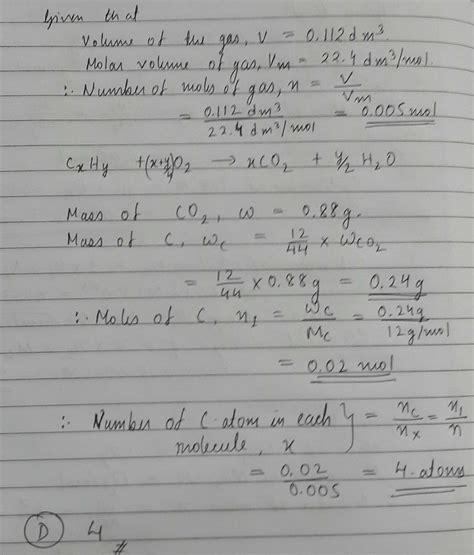 Given that
Volume of the gas, V = 0.112 dm³
Molar volume of gas, Vm = 22.4 dm³/mol.
∴ Number of mols of gas, n = V/Vm
= 0.112 dm³ / 22.4 dm³/mol = 0.005 mol
CxHy + (x+y/4)O2 → xCO2 + y/2 H2O
Mass of CO2, w = 0.88g.
Mass of C, wc = 12/44 × wCO2
= 12/44 × 0.88g = 0.24g
∴ Moles of C, n1 = wc/Mc = 0.24g / 12g/mol
= 0.02 mol
∴ Number of C-atom in each molecule, x } = nc/nx = n1/n
= 0.02/0.005 = 4 atoms
(D) 4 //